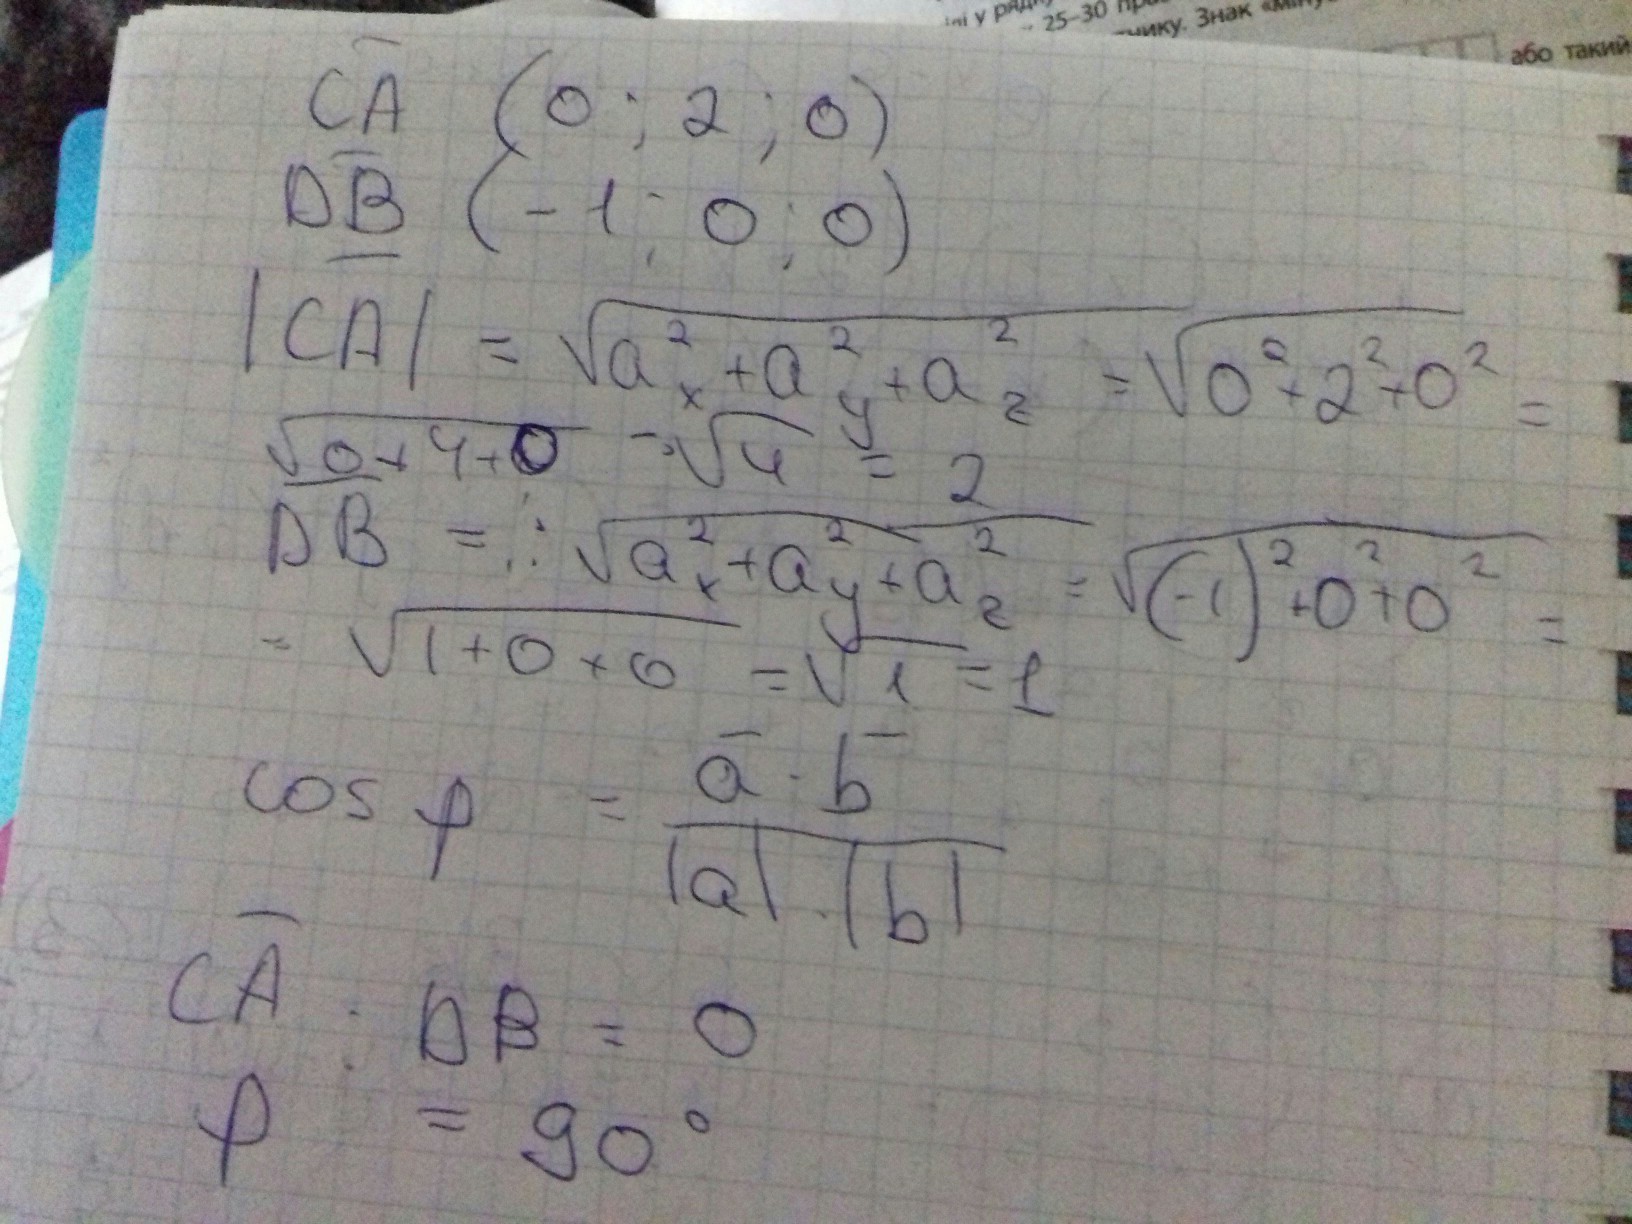 ілі у рядку
25–30
чнику. Знак «мінус
або такий
CA (0; 2; 0)
DB (-1; 0; 0)
|CA| = √a²x+a²y+a²z = √0²+2²+0² =
√0+4+0 = √4 = 2
DB = : √a²x+a²y+a²z = √(-1)²+0²+0² =
= √1+0+0 = √1 = 1
cos φ = a̅ · b̅ / |a| · |b|
CA · DB = 0
φ = 90°